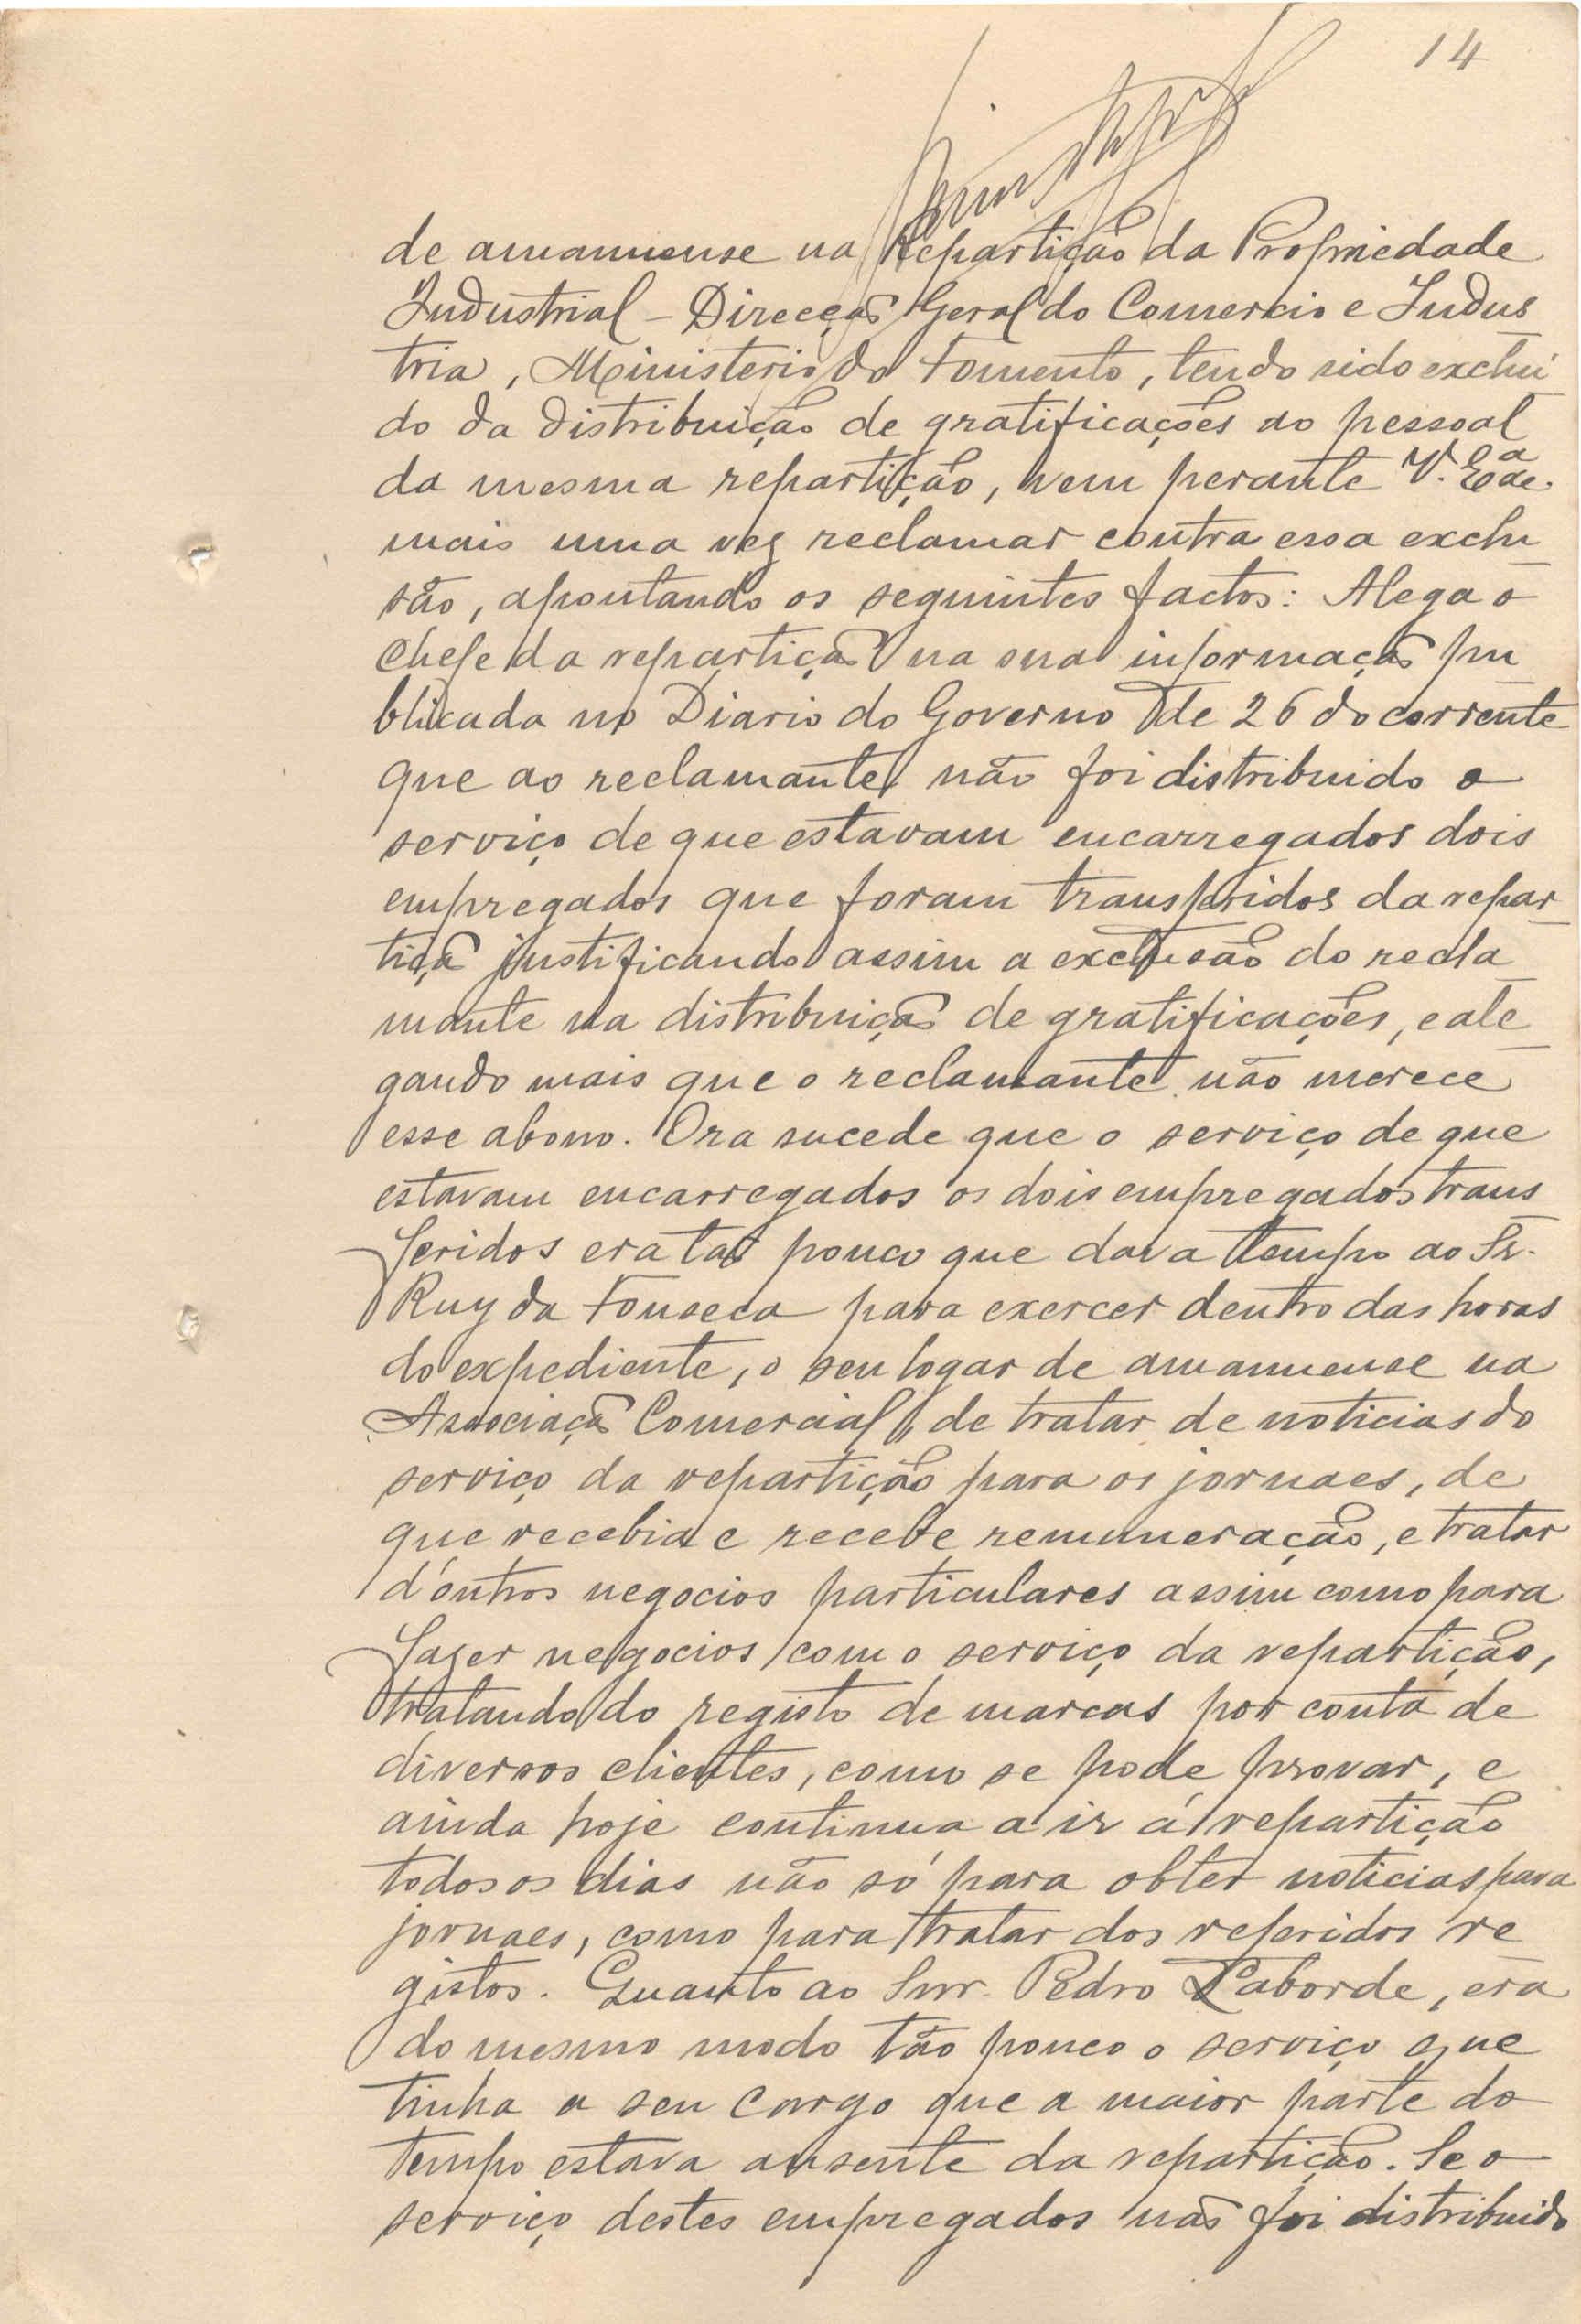 14
de amanuense na Repartição da Propriedade
Industrial – Direcção Geral do Comercio e Indus
tria, Ministerio do Fomento, tendo sido exclui
do da distribuição de gratificações ao pessoal
da mesma repartição, vem perante V. Exª.
mais uma vez reclamar contra essa exclu
são, apontando os seguintes factos: Alega o
Chefe da repartição na sua informação pu
blicada no Diario do Governo de 26 do corrente
que ao reclamante não foi distribuido o
serviço de que estavam encarregados dois
empregados que foram transferidos da repar
tição justificando assim a exclusão do recla
mante na distribuição de gratificações, e ale
gando mais que o reclamante não merece
esse abono. Ora sucede que o serviço de que
estavam encarregados os dois empregados trans
feridos era tão pouco que dava tempo ao Sr.
Ruy da Fonseca para exercer dentro das horas
do expediente, o seu logar de amanuense na
Associação Comercial, de tratar de noticias do
serviço da repartição para os jornaes, de
que recebia e recebe remuneração, e tratar
d'outros negocios particulares assim como para
fazer negocios com o serviço da repartição,
tratando do registo de marcas por conta de
diversos clientes, como se pode provar, e
ainda hoje continua a ir á repartição
todos os dias não só para obter noticias para
jornaes, como para tratar dos referidos re
gistos. Quanto ao Snr. Pedro Laborde, era
do mesmo modo tão pouco o serviço que
tinha a seu cargo que a maior parte do
tempo estava ausente da repartição. Se o
serviço destes empregados não foi distribuido